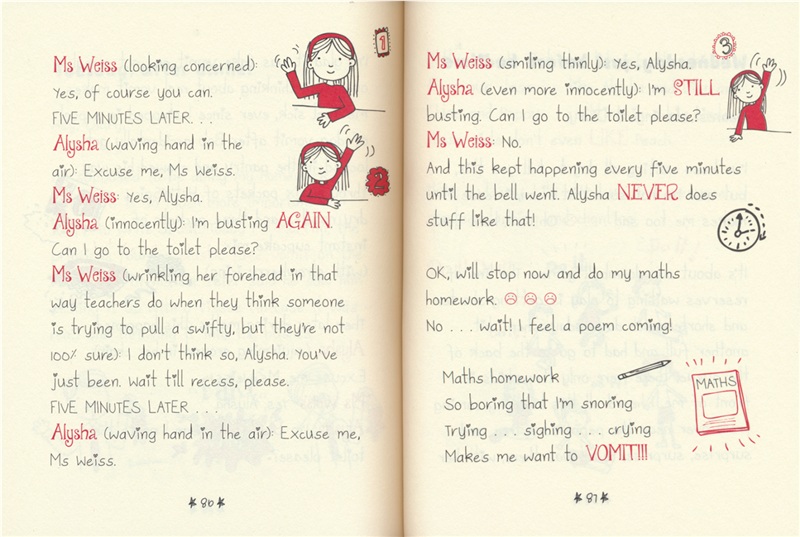 1
Ms Weiss (looking concerned):
Yes, of course you can.
FIVE MINUTES LATER. . .
Alysha (waving hand in the
air): Excuse me, Ms Weiss.
2
Ms Weiss: Yes, Alysha.
Alysha (innocently): I'm busting AGAIN.
Can I go to the toilet please?
Ms Weiss (wrinkling her forehead in that
way teachers do when they think someone
is trying to pull a swifty, but they're not
100% sure): I don't think so, Alysha. You've
just been. Wait till recess, please.
FIVE MINUTES LATER . . .
Alysha (waving hand in the air): Excuse me,
Ms Weiss.
86
3
Ms Weiss (smiling thinly): Yes, Alysha.
Alysha (even more innocently): I'm STILL
busting. Can I go to the toilet please?
Ms Weiss: No.
And this kept happening every five minutes
until the bell went. Alysha NEVER does
stuff like that!
OK, will stop now and do my maths
homework. ☹ ☹ ☹
No . . . wait! I feel a poem coming!
Maths homework
So boring that I'm snoring
Trying . . . sighing . . . crying
Makes me want to VOMIT!!!
MATHS
87